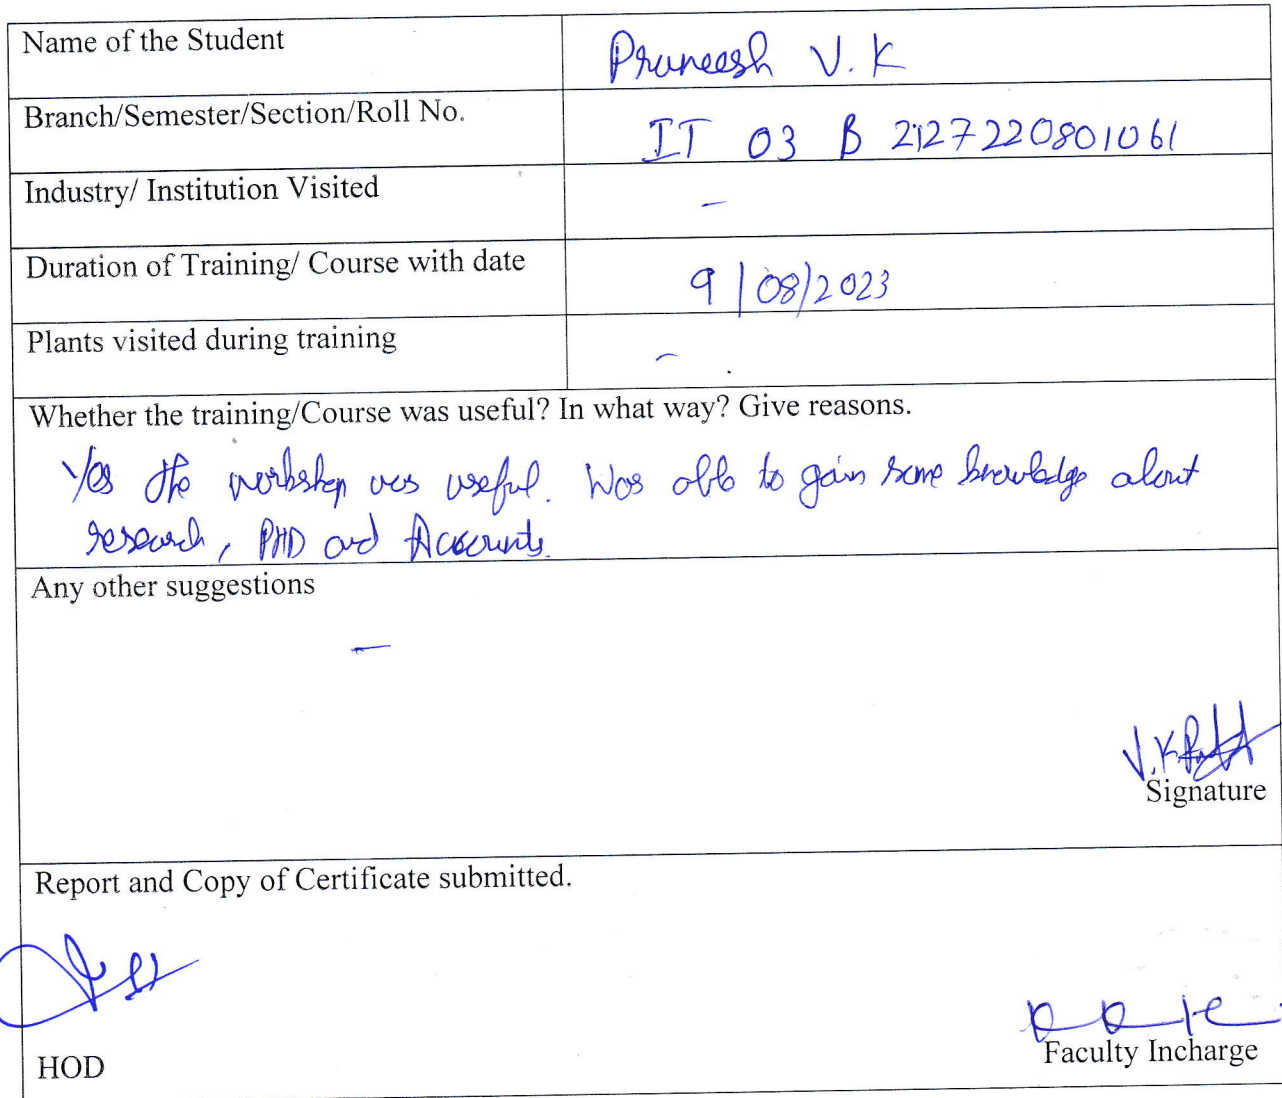 Name of the Student
Pruneesh V. K
Branch/Semester/Section/Roll No.
IT 03 B 2127220801061
Industry/ Institution Visited
-
Duration of Training/ Course with date
9/08/2023
Plants visited during training
-
Whether the training/Course was useful? In what way? Give reasons.
Yes the workshop was useful. Was able to gain some knowledge about
research, PHD and Accounts.
Any other suggestions
-
V.K
Signature
Report and Copy of Certificate submitted.
HOD
Faculty Incharge